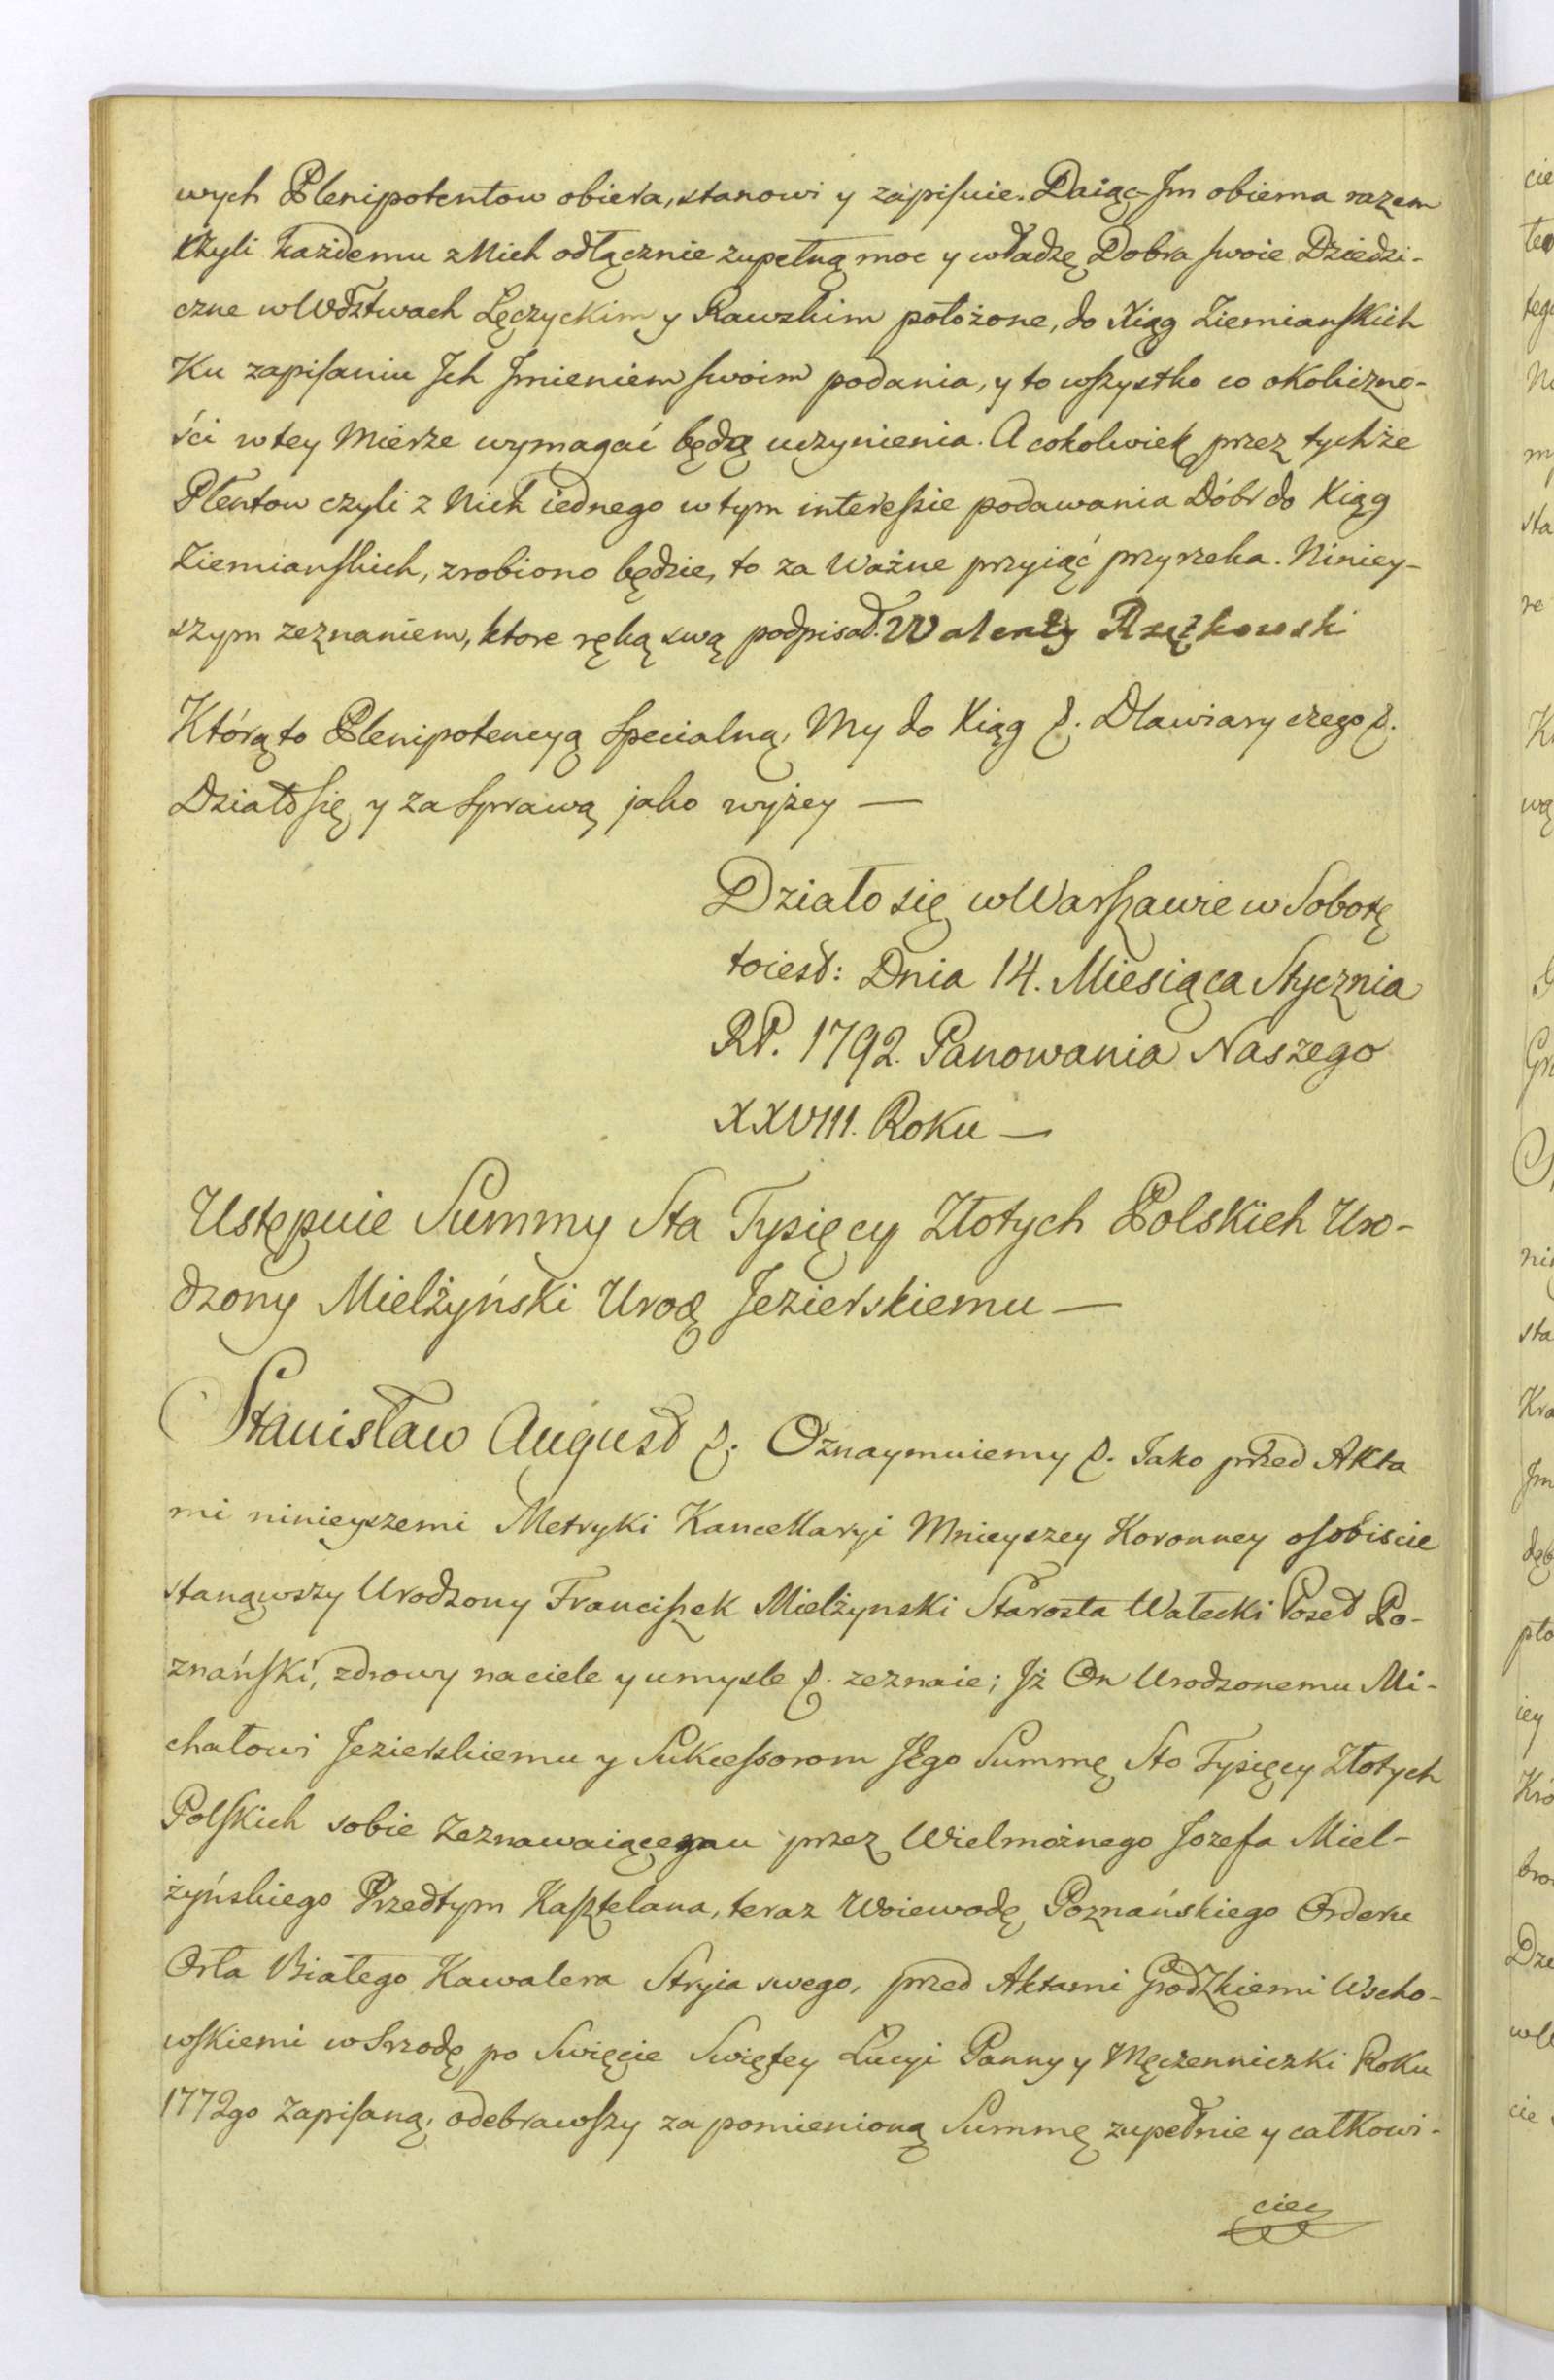 wych Plenipotentow obiera, stanowi y zapisuie. Daiąc Im obiema razem
czyli każdemu z Nich odłącznie zupełną moc y władzę Dobra swoie Dziedzi-
czne w Wdztwach Łęczyckim y Rawskim położone, do Xiąg Ziemianskich
Ku zapisaniu Ich Imieniem swoim podania, y to wszystko co okoliczno-
ści w tey Mierze wymagać będą uczynienia. A cokolwiek przez tychże
Plentow czyli z Nich iednego w tym interessie podawania Dóbr do Xiąg
Ziemianskich, zrobiono będzie, to za Ważne przyiąć przyrzeka. Niniey-
szym zeznaniem, ktore ręką swą podpisał. Walenty Rzętkowski
Którą to Plenipotencyą specialną, My do Xiąg &. Dla wiary czego &.
Działo się y za sprawą jako wyżey —
Działo się w Warszawie w Sobotę
toiest: Dnia 14. Miesiąca Stycznia
RP. 1792. Panowania Naszego
XXVIII. Roku —
Ustępuie Summy Sta Tysięcy Złotych Polskich Uro-
dzony Mielżyński Urodz Jezierskiemu —
Stanisław August &. Oznaymuiemy &. Iako przed Akta
mi ninieyszemi Metryki Kancellaryi Mnieyszey Koronney osobiscie
stanąwszy Urodzony Franciszek Mielżynski Starosta Wałecki Poseł Po-
znański, zdrowy na ciele y umysle &. zeznaie; Iż On Urodzonemu Mi-
chałowi Jezierskiemu y Sukcessorom Jego Summę Sto Tysięcy Złotych
Polskich sobie Zeznawaiącemu przez Wielmożnego Jozefa Miel-
żyńskiego Przedtym Kasztelana, teraz Woiewodę Poznańskiego Orderu
Orła Białego Kawalera Stryia swego, przed Aktami Grodzkiemi Wscho-
wskiemi w Srzodę po Swięcie Swiętey Łucyi Panny y Męczenniczki Roku
1772go zapisaną, odebrawszy za pomienioną Summę zupełnie y całkowi-
cie